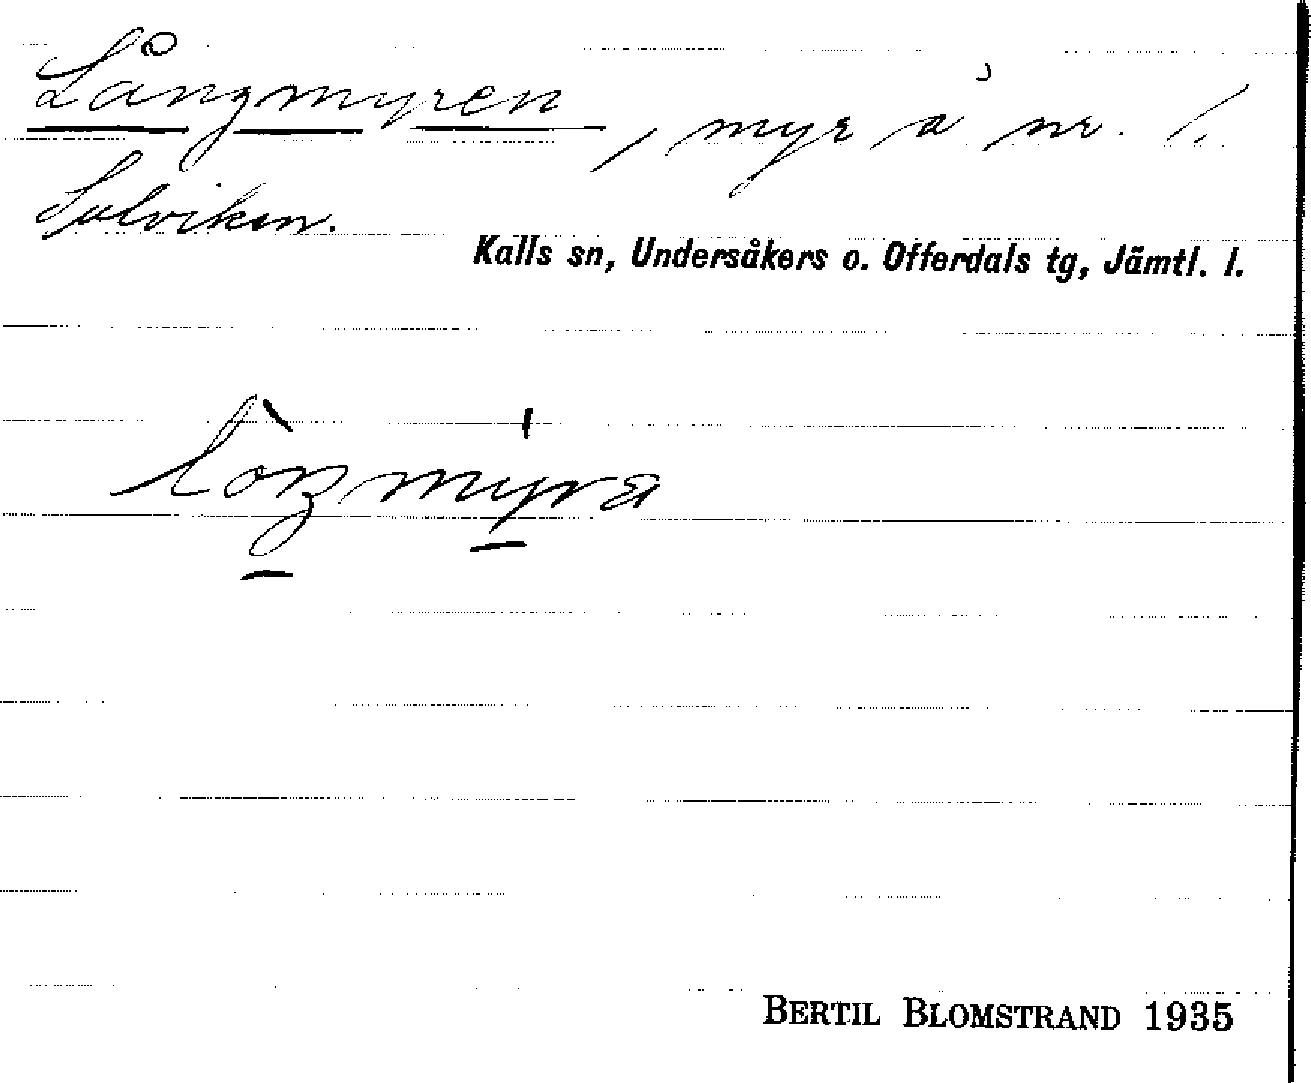 Långmyren, myr å nr. 1.
Solviken.
Kalls sn, Undersåkers o. Offerdals tg, Jämtl. l.
BERTIL BLOMSTRAND 1935